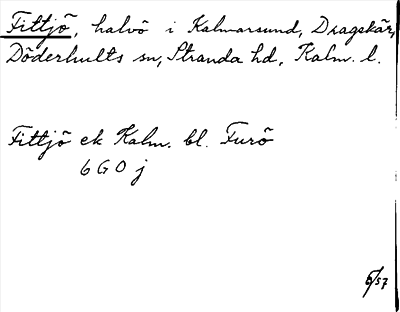 Fittjö, halvö i Kalmarsund, Dragskär,
Döderhults sn, Stranda hd, Kalm. l.
Fittjö ek Kalm. bl. Furö
6 G 0 j
6/57